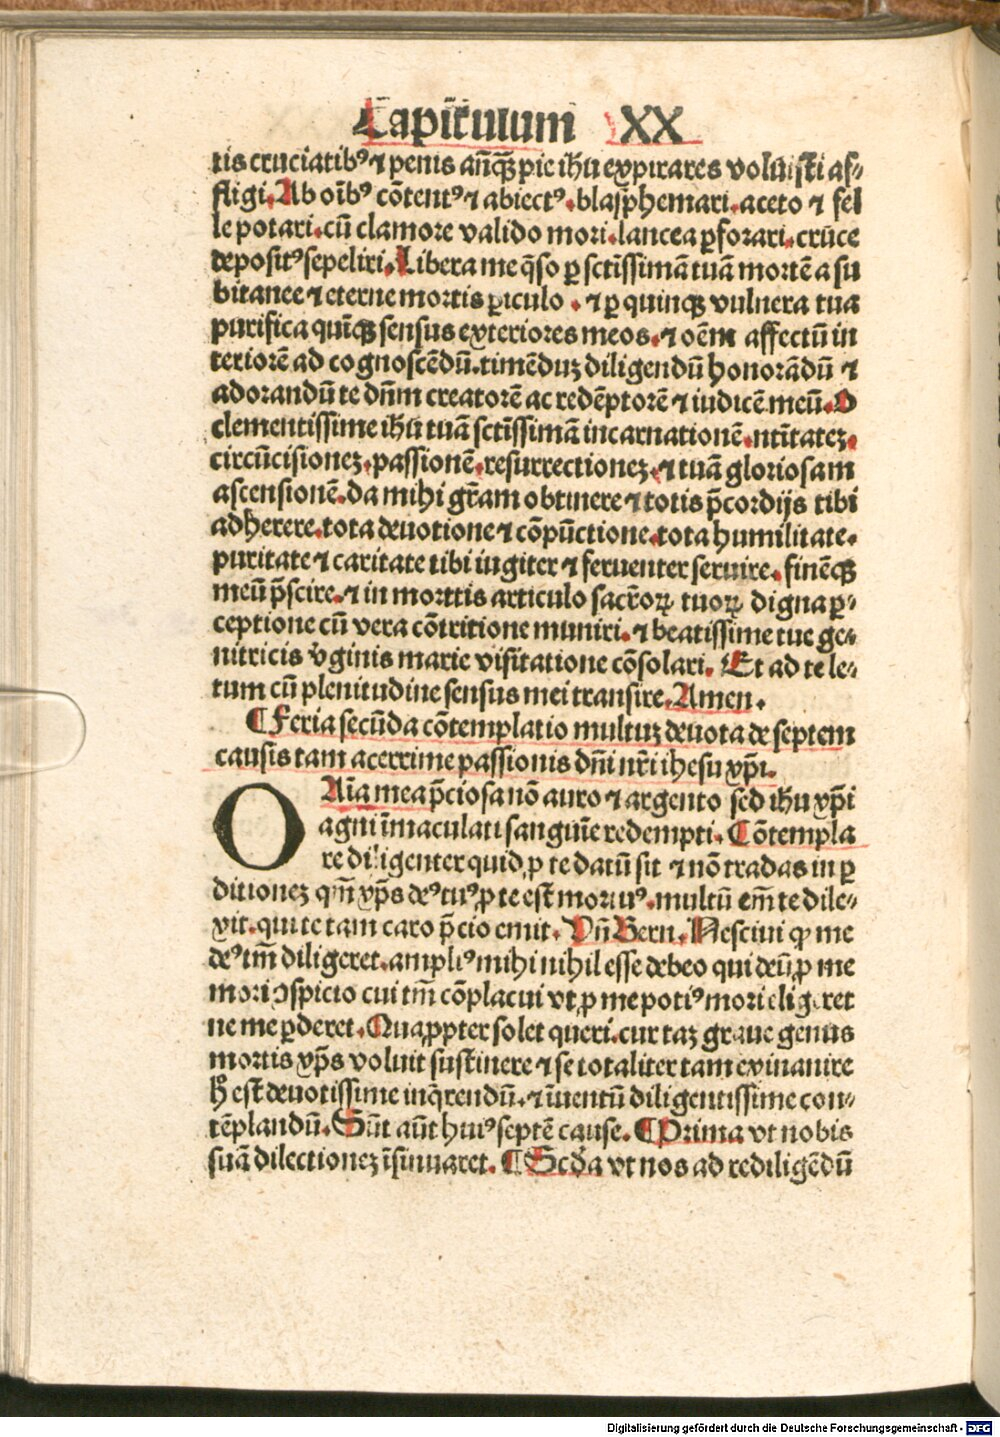 Capitulum XX
tis cruciatibꝰ ⁊ penis anq̄ꝫ pie ihu expirares voluisti af⸗
fligi. Ab oībꝰ cōtentꝰ ⁊ abiectꝰ. blasphemari. aceto ⁊ fel
le potari. cū clamore valido mori. lancea ꝑforari. cruce
depositꝰ sepeliri. Libera me q̄so ꝑ sctissimā tuā mortē a su
bitanee ⁊ eterne mortis ꝑiculo. ⁊ ꝑ quinqꝫ vulnera tua
purifica quīqꝫ sensus exteriores meos. ⁊ oēm affectū in
teriorē ad cognoscēdū. timēduꝫ diligendū honorādū ⁊
adorandū te dn̄m creatorē ac redēptorē ⁊ iudicē meū. O
clementissime ihu tuā sctissimā incarnationē. ntītateꝫ.
circūcisioneꝫ. passionē. resurrectioneꝫ. ⁊ tuā gloriosam
ascensionē. da mihi gr̄am obtinere ⁊ totis p̄cordijs tibi
adherere. tota deuotione ⁊ cōpūctione. tota humilitate.
puritate ⁊ caritate tibi iugiter ⁊ feruenter seruire. finēqꝫ
meū p̄scire. ⁊ in morttis articulo sacr̄oꝝ tuoꝝ digna ꝑ⸗
ceptione cū vera cōtritione muniri. ⁊ beatissime tue ge⸗
nitricis v̄ginis marie visitatione cōsolari. Et ad te le⸗
tum cū plenitudine sensus mei transire. Amen.
¶ Feria secūda cōtemplatio multuꝫ deuota de septem
causis tam acerrime passionis dn̄i nr̄i ihesu xp̄i.
O Aīa mea p̄ciosa nō auro ⁊ argento sed ihu xp̄i
agni īmaculati sanguīe redempti. Cōtempla
re diligenter quid ꝓ te datū sit ⁊ nō tradas in ꝑ
ditioneꝫ qm̄ xp̄s deꝰ tuꝰ ꝓ te est mortuꝰ. multū em̄ te dile⸗
xit. qui te tam caro p̄cio emit. Vn̄ Bern. Nesciui ꝙ me
deꝰ tm̄ diligeret. ampliꝰ mihi nihil esse debeo qui deū ꝓ me
mori ꝯspicio cui tm̄ cōplacui vt ꝓ me potiꝰ mori eligeret
ne me ꝑderet. Quaꝓpter solet queri. cur taꝫ graue genus
mortis xp̄s voluit sustinere ⁊ se totaliter tam exinanire
h̄ est deuotissime inq̄rendū. ⁊ īuentū diligentissime con⸗
tēplandū. Sūt aūt huiꝰ septē cause. ¶ Prima vt nobis
suā dilectioneꝫ īsinuaret. ¶ Scd̄a vt nos ad rediligēdū
Digitalisierung gefördert durch die Deutsche Forschungsgemeinschaft - DFG